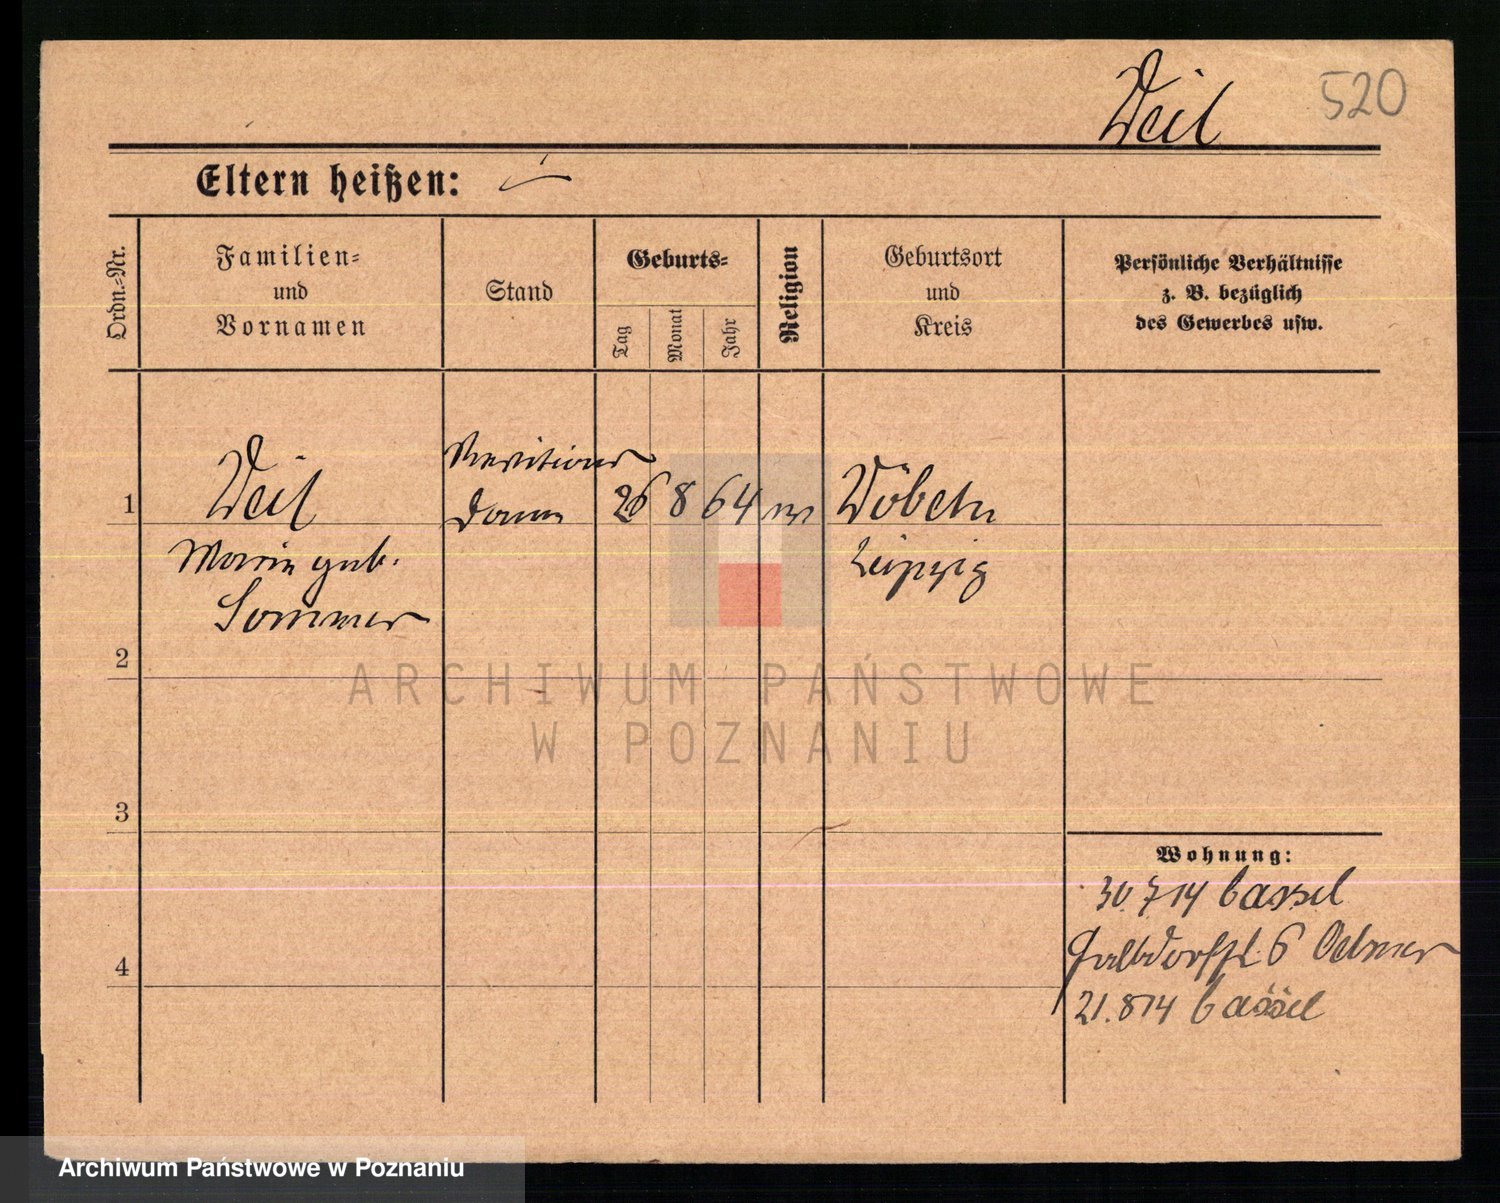 Weil 520
Eltern heißen: -
Ordn.-Nr.
Familien-
und
Vornamen
Stand
Geburts-
Tag
Monat
Jahr
Religion
Geburtsort
und
Kreis
Persönliche Verhältnisse
z. B. bezüglich
des Gewerbes usw.
1 Weil 26 8 64 Döbeln
Marie geb. Leipzig
Sommer
2
ARCHIWUM PAŃSTWOWE
W POZNANIU
3
Wohnung:
30.7 14 Cassel
6
4
21.8 14 Cassel
Archiwum Państwowe w Poznaniu